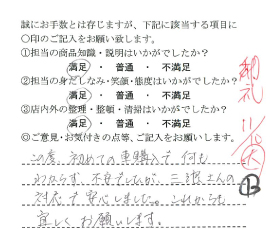 誠にお手数とは存じますが、下記に該当する項目に
○印のご記入をお願い致します。
①担当の商品知識・説明はいかがでしたか?
満足 ・ 普通 ・ 不満足
②担当の身だしなみ・笑顔・態度はいかがでしたか?
満足 ・ 普通 ・ 不満足
③店内外の整理・整頓・清掃はいかがでしたか?
満足 ・ 普通 ・ 不満足
◎ご意見・お気付きの点等、ご記入をお願いします。
この度、初めての車購入で何も
わからず、不安でしたが、三張さんの
対応で安心しました。これからも
宜しくお願いします。
御礼